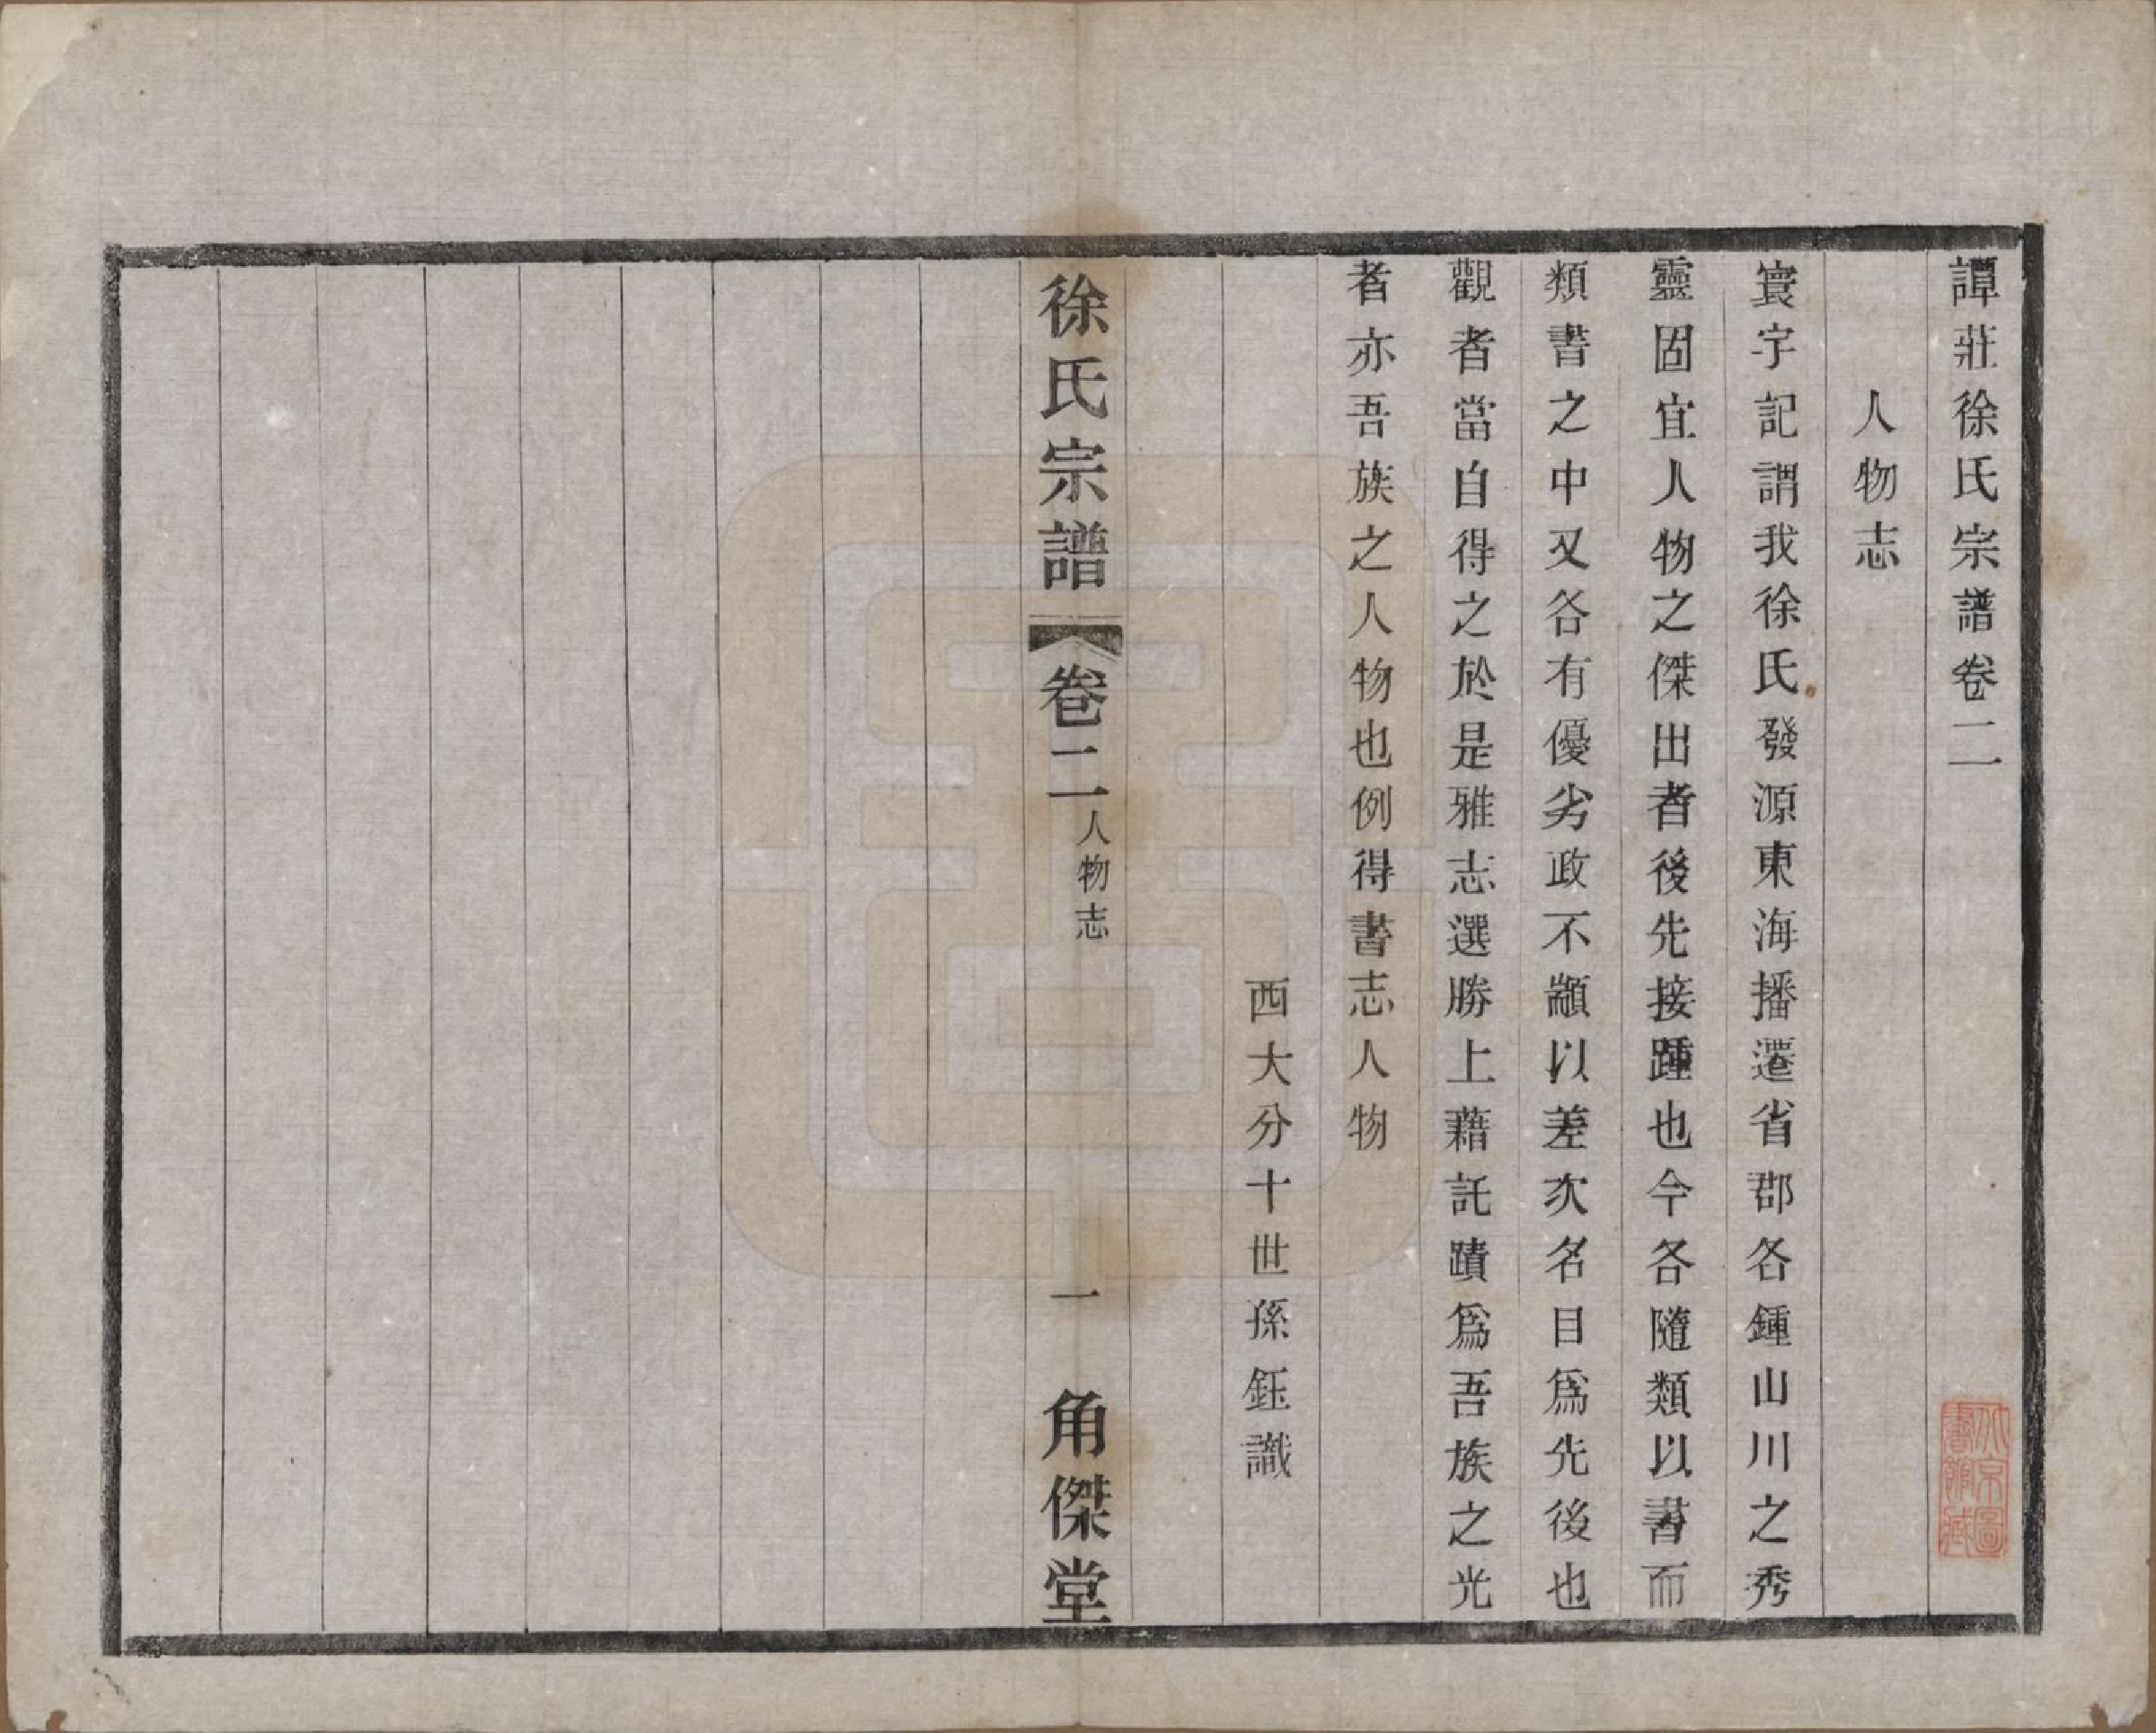 譚莊徐氏宗譜卷二
人物志
寰宇記謂我徐氏發源東海播遷省郡各鍾山川之秀
靈固宜人物之傑出者後先接踵也今各隨類以書而
類書之中又各有優劣政不顓以差次名目爲先後也
觀者當自得之於是雅志選勝上藉託蹟爲吾族之光
者亦吾族之人物也例得書志人物
西大分十世孫鈺識
徐氏宗譜 卷二 人物志 一 角傑堂
北京圖
書館藏